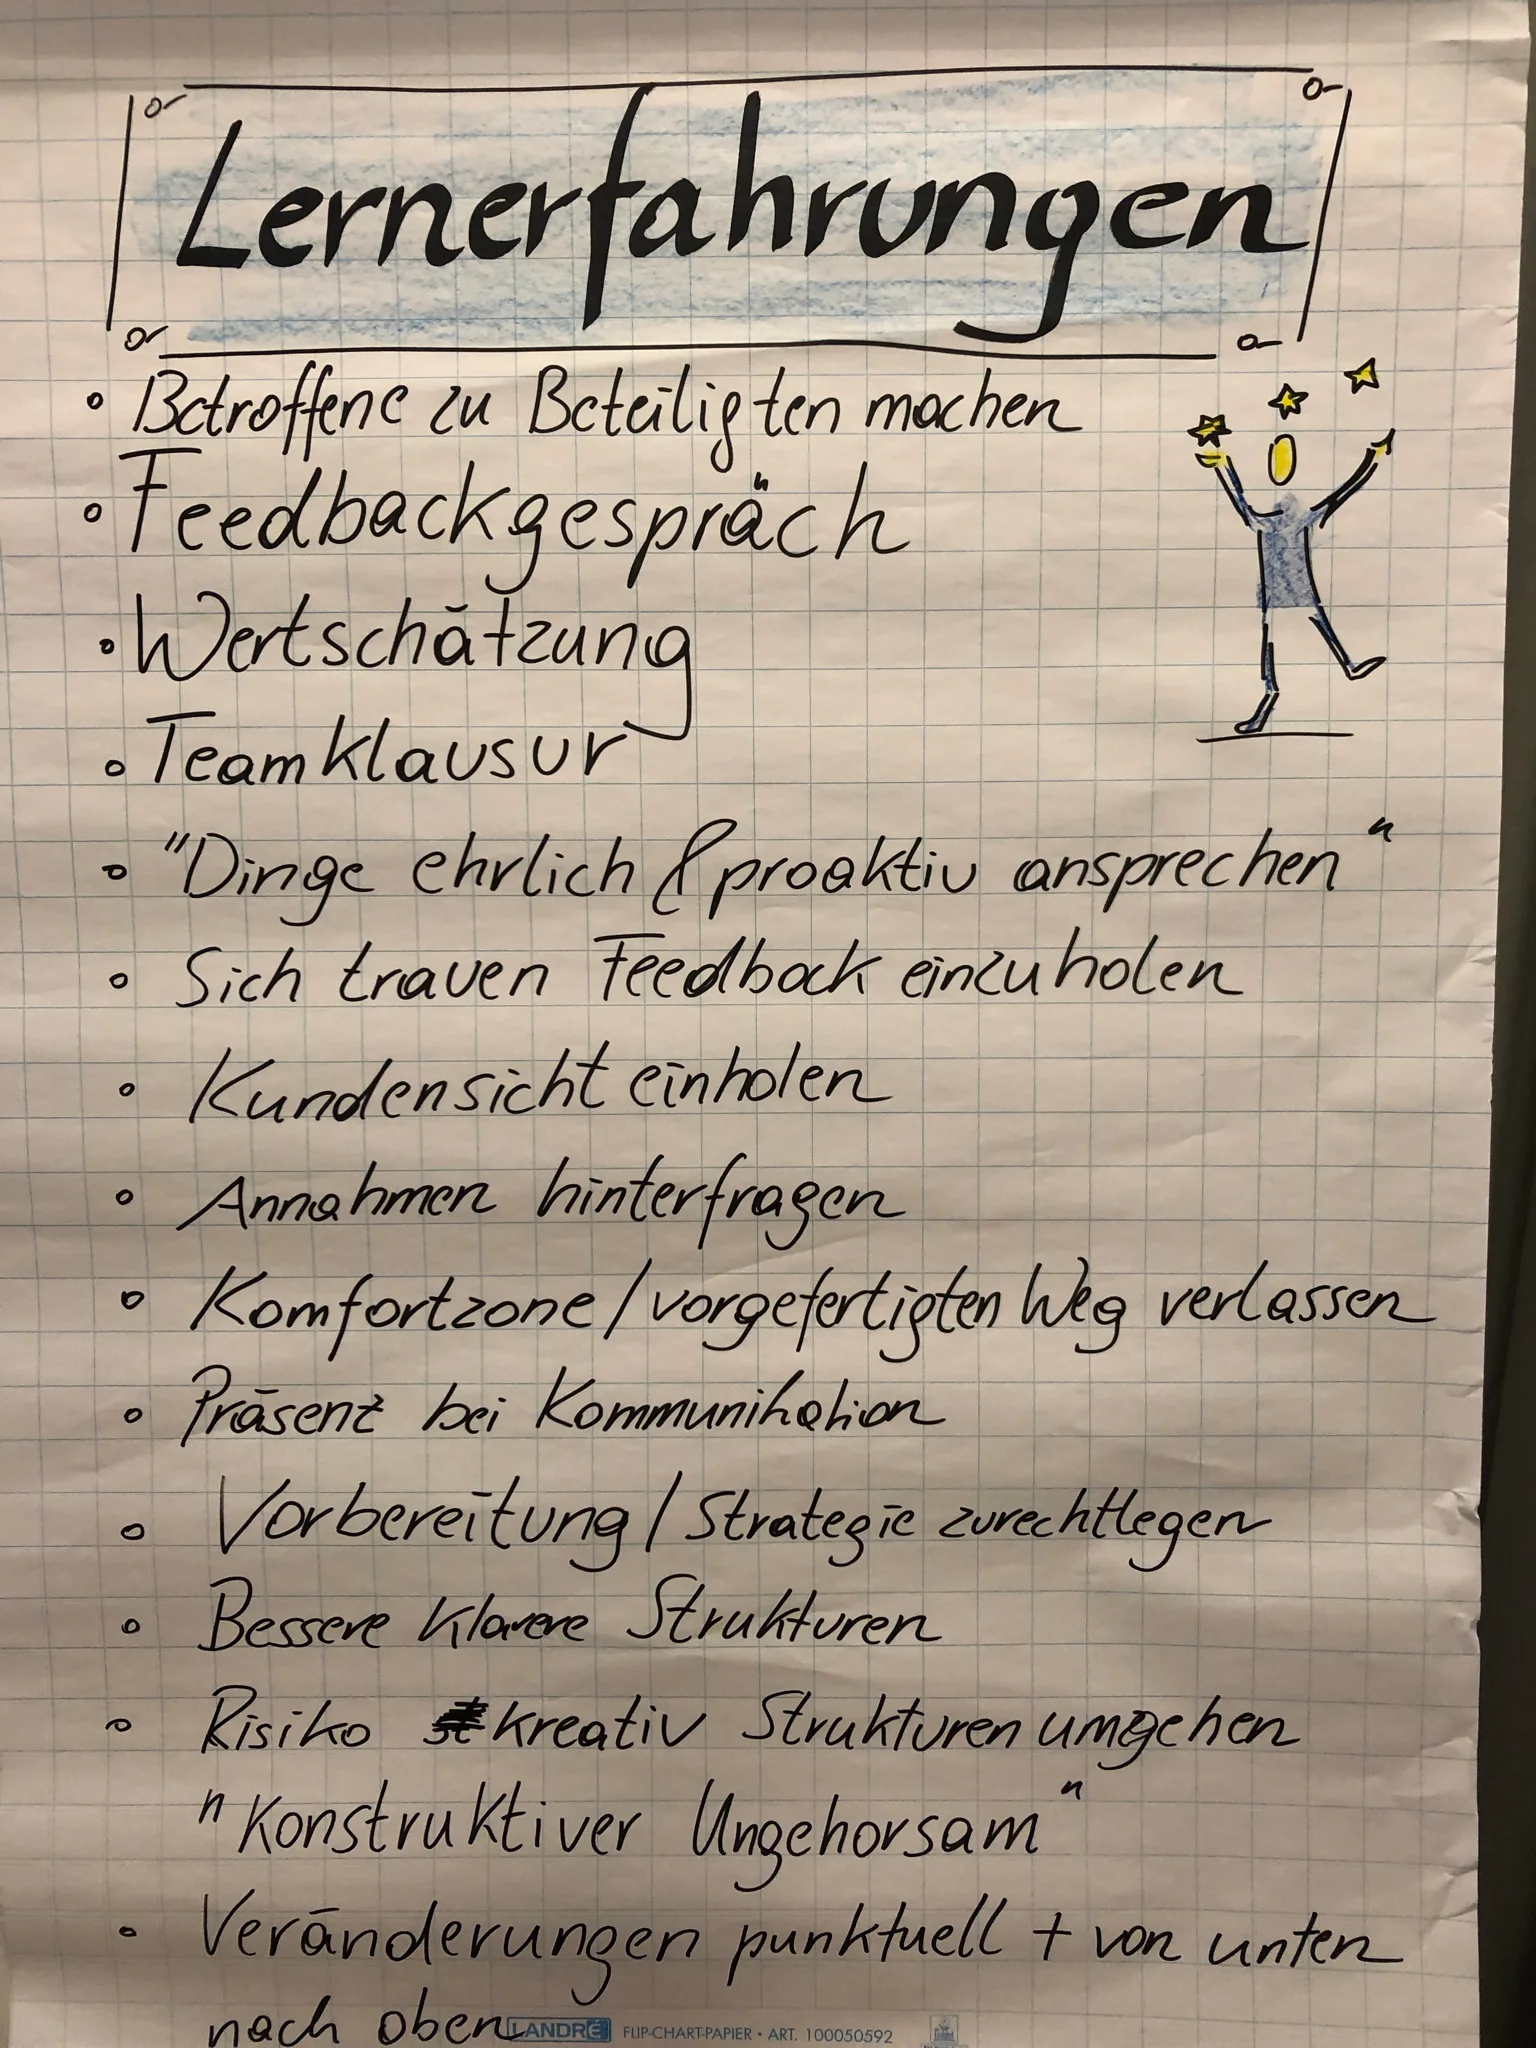 Lernerfahrungen
• Betroffene zu Beteiligten machen
• Feedbackgespräch
• Wertschätzung
• Teamklausur
• "Dinge ehrlich & proaktiv ansprechen"
• Sich trauen Feedback einzuholen
• Kundensicht einholen
• Annahmen hinterfragen
• Komfortzone / vorgefertigten Weg verlassen
• Präsenz bei Kommunikation
• Vorbereitung / Strategie zurechtlegen
• Bessere klarere Strukturen
• Risiko kreativ Strukturen umgehen
"Konstruktiver Ungehorsam"
• Veränderungen punktuell + von unten
nach oben
LANDRÉ FLIP-CHART-PAPIER • ART. 100050592